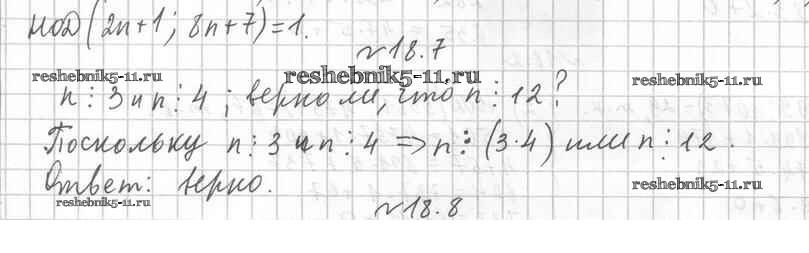 НОД(2n+1; 8n+7)=1.
№18.7
reshebnik5-11.ru reshebnik5-11.ru reshebnik5-11.ru
n⋮3 и n⋮4; верно ли, что n⋮12?
Поскольку n⋮3 и n⋮4 ⇒ n⋮(3·4) или n⋮12.
Ответ: верно.
reshebnik5-11.ru reshebnik5-11.ru
№18.8